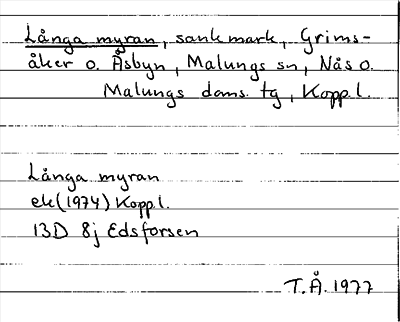 Långa myran, sank mark, Grims-
åker o. Åsbyn, Malungs sn, Nås o.
Malungs doms. tg, Kopp. l.
Långa myran
ek (1974) Kopp. l.
13D 8j Edsforsen
T.Å. 1977